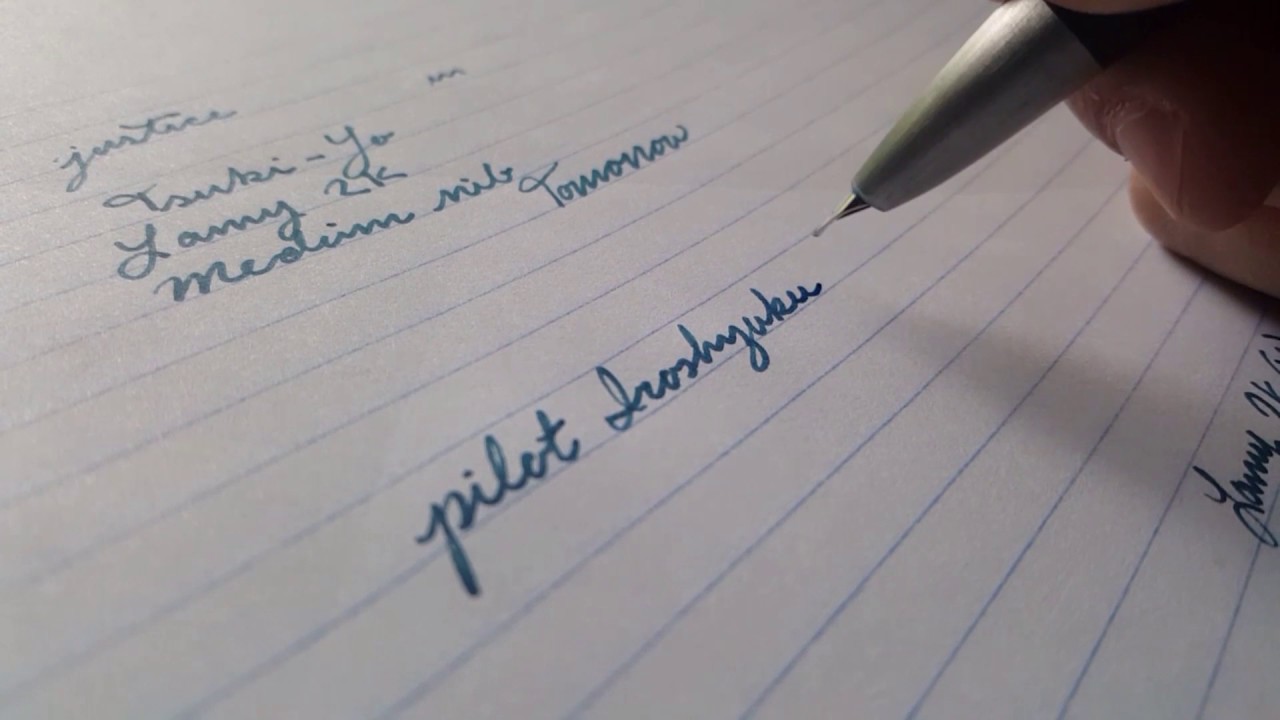 justice
Tsuki-Yo
Lamy 2K
Medium nib Tomorrow
pilot Iroshyuku
Lamy 2K